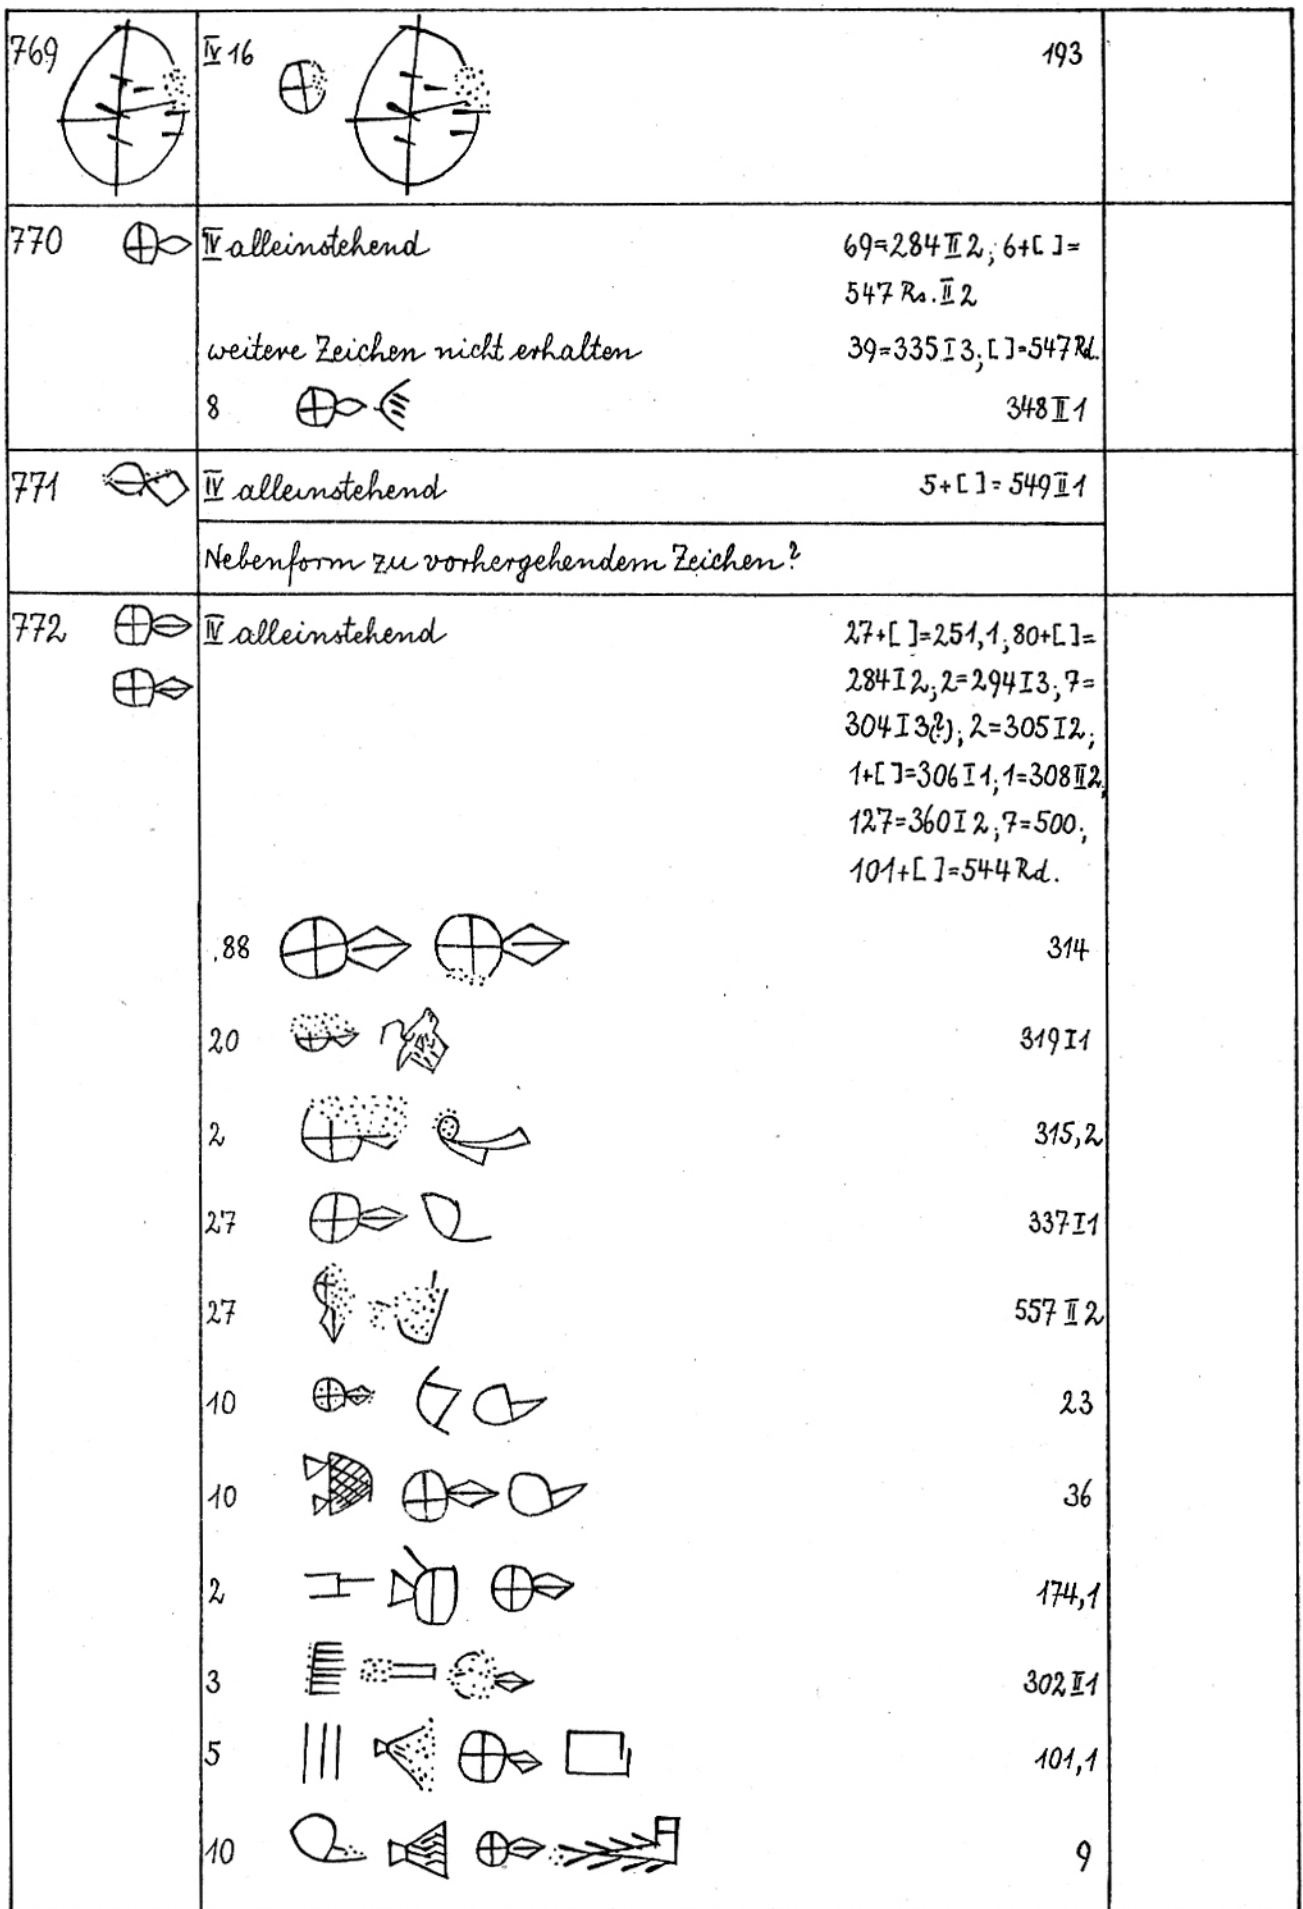 769 IV 16 193
770 IV alleinstehend 69=284 II 2; 6+[ ]=
547 Rs. II 2
weitere Zeichen nicht erhalten 39=335 I 3; [ ]=547 Rd.
8 348 II 1
771 IV alleinstehend 5+[ ]=549 II 1
Nebenform zu vorhergehendem Zeichen?
772 IV alleinstehend 27+[ ]=251,1; 80+[ ]=
284 I 2; 2=294 I 3; 7=
304 I 3(?); 2=305 I 2;
1+[ ]=306 I 1; 1=308 II 2;
127=360 I 2; 7=500;
101+[ ]=544 Rd.
88 314
20 319 I 1
2 315,2
27 337 I 1
27 557 II 2
10 23
10 36
2 174,1
3 302 II 1
5 101,1
10 9